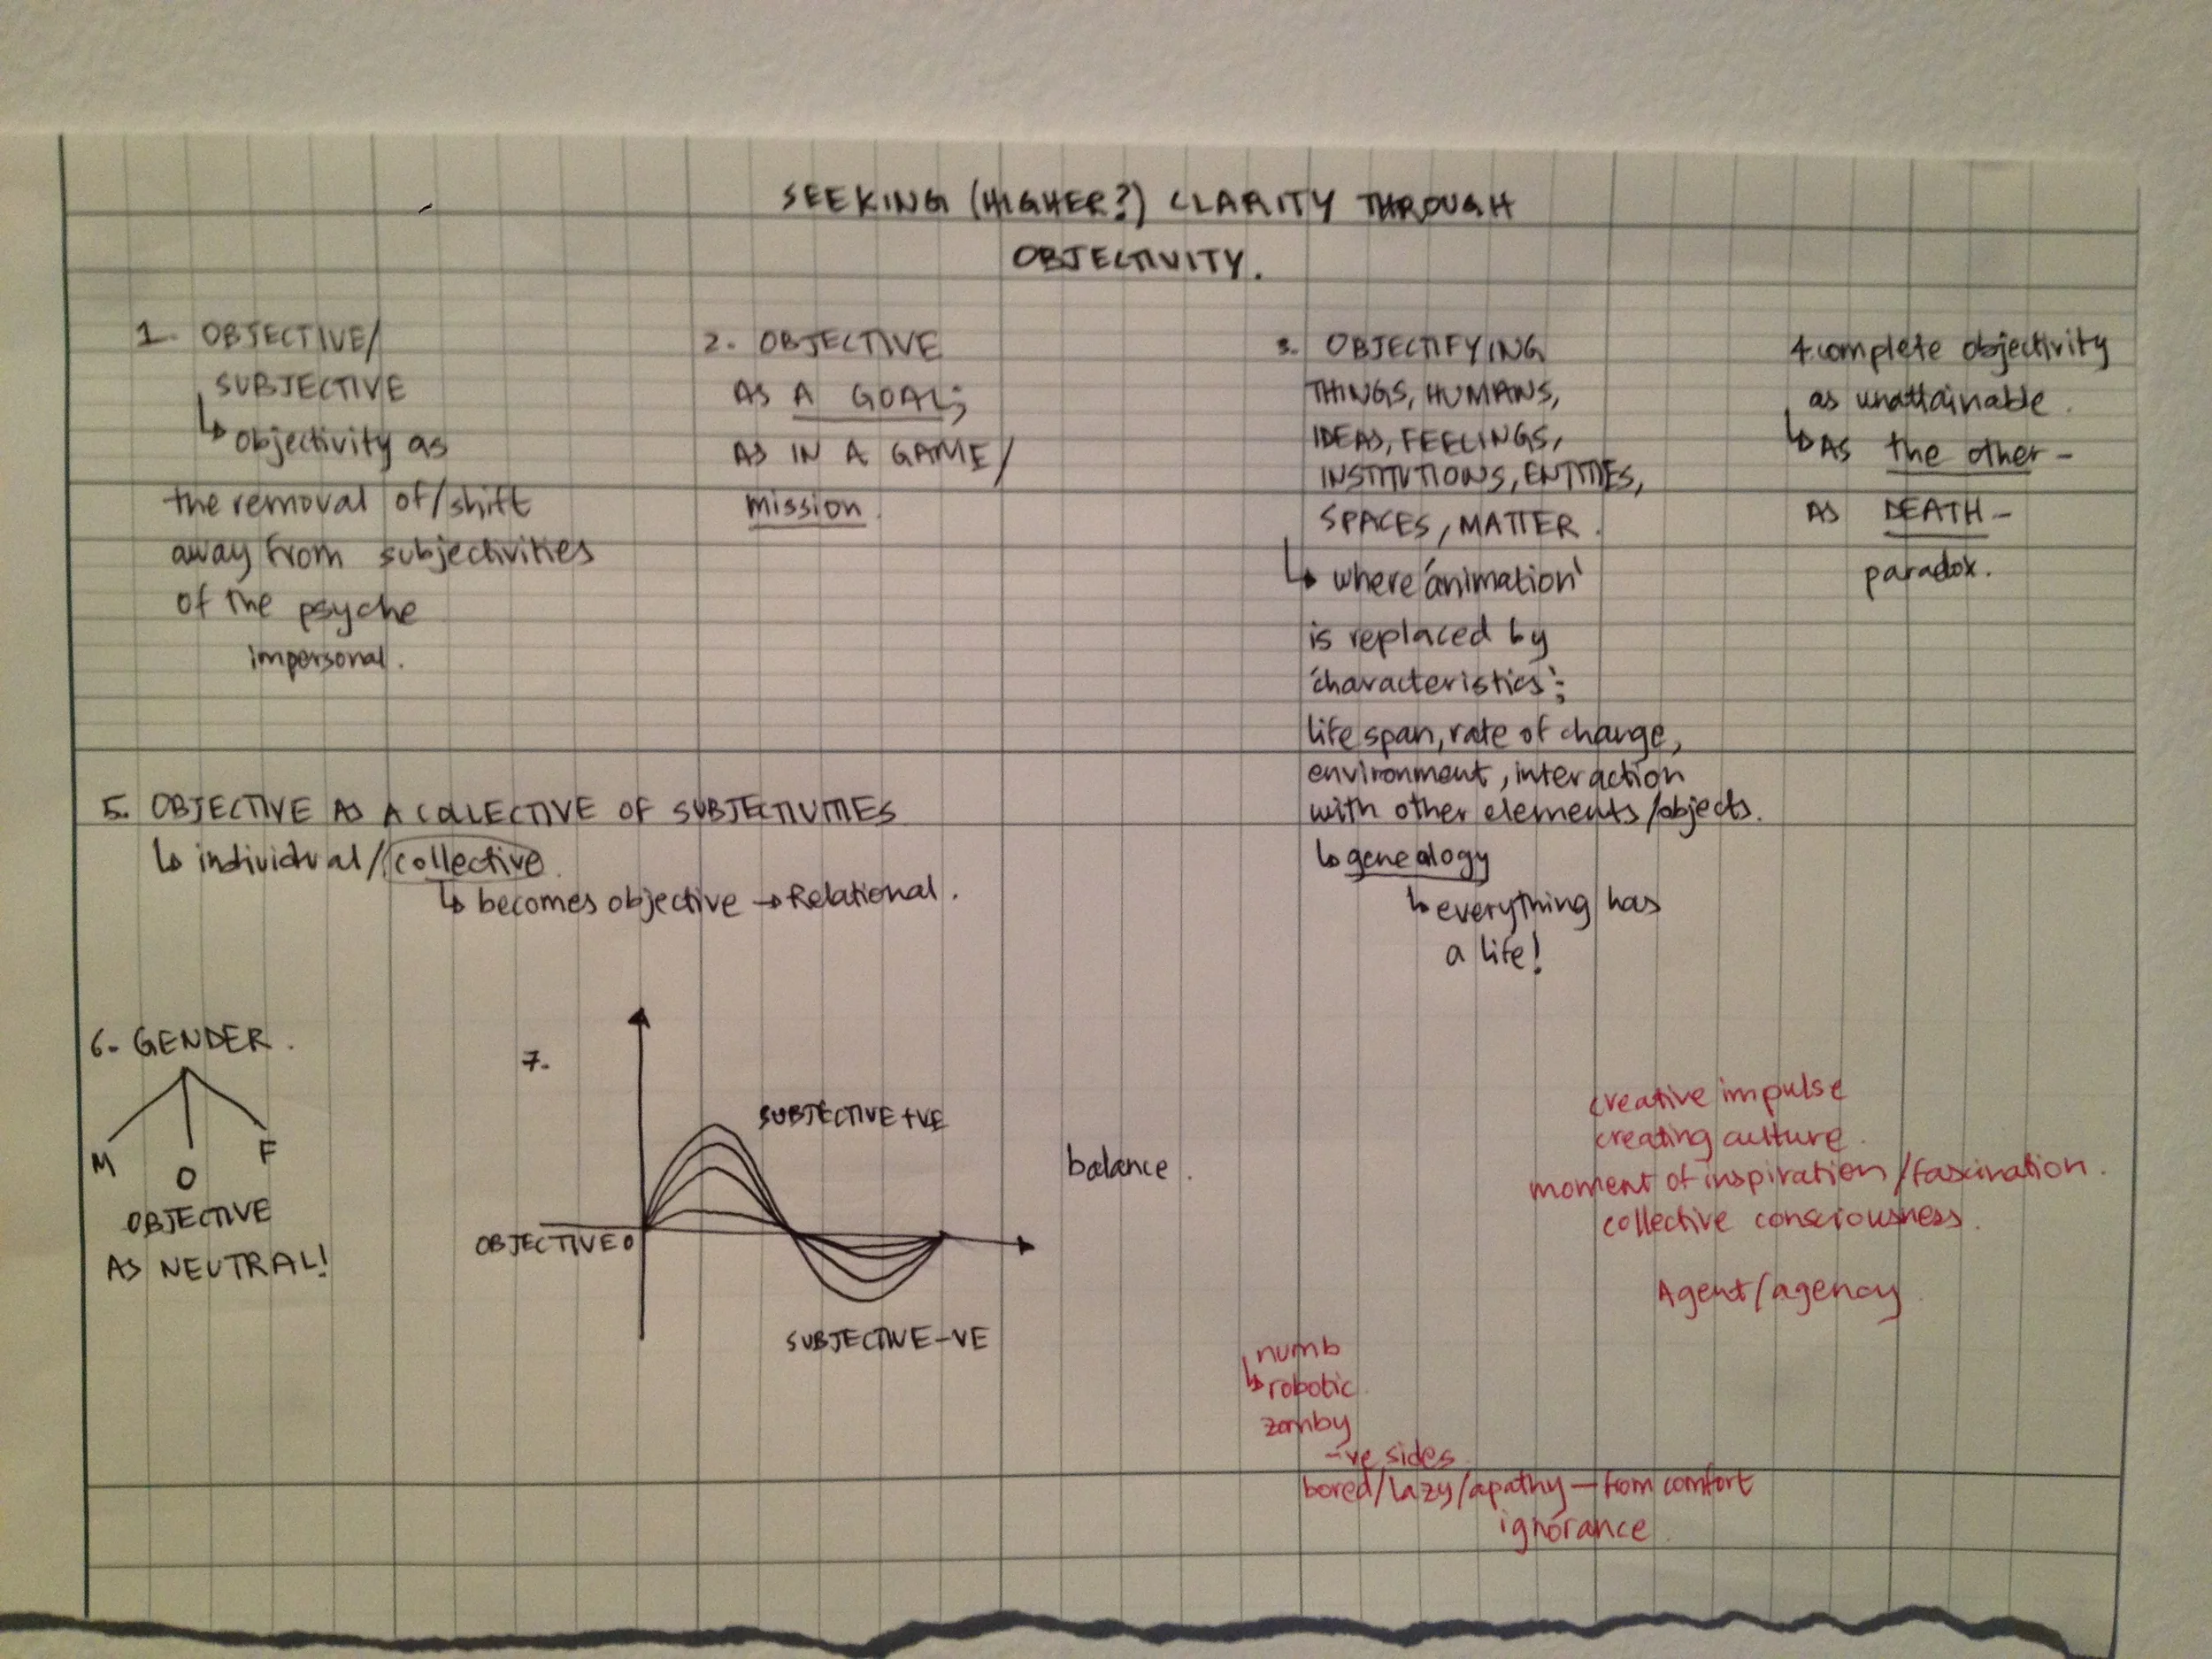 SEEKING (HIGHER?) CLARITY THROUGH
OBJECTIVITY.
1. OBJECTIVE/
SUBJECTIVE
↳ objectivity as
the removal of/shift
away from subjectivities
of the psyche
impersonal.
2. OBJECTIVE
AS A GOAL;
AS IN A GAME/
mission.
3. OBJECTIFYING
THINGS, HUMANS,
IDEAS, FEELINGS,
INSTITUTIONS, ENTITIES,
SPACES, MATTER.
↳ where 'animation'
is replaced by
'characteristics';
life span, rate of change,
environment, interaction
with other elements/objects.
↳ genealogy
↳ everything has
a life!
4. complete objectivity
as unattainable.
↳ AS the other -
AS DEATH -
paradox.
5. OBJECTIVE AS A COLLECTIVE OF SUBJECTIVITIES
↳ individual/collective.
↳ becomes objective → Relational.
6. GENDER.
M O F
OBJECTIVE
AS NEUTRAL!
7.
SUBJECTIVE +VE
OBJECTIVE 0
SUBJECTIVE -VE
balance.
creative impulse
creating culture.
moment of inspiration/fascination.
collective consciousness.
Agent/agency
numb
↳ robotic
zomby
-ve sides
bored/lazy/apathy — from comfort
ignorance